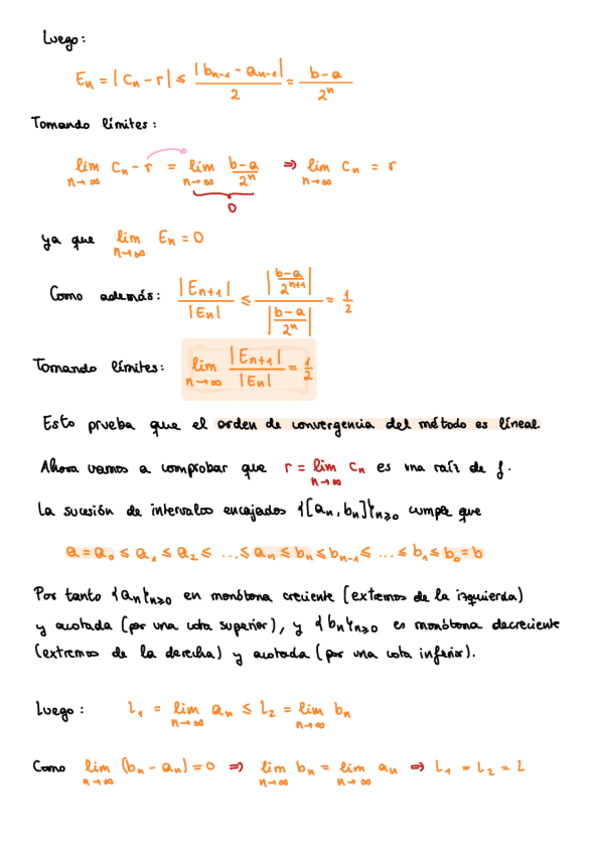 Luego:
Eₙ = |cₙ - r| ≤ |bₙ₋₁ - aₙ₋₁| / 2 = (b-a) / 2ⁿ
Tomando límites:
lim n→∞ cₙ - r = lim n→∞ (b-a) / 2ⁿ ⇒ lim n→∞ cₙ = r
0
ya que lim n→∞ Eₙ = 0
Como además: |Eₙ₊₁| / |Eₙ| ≤ |(b-a) / 2ⁿ⁺¹| / |(b-a) / 2ⁿ| = 1/2
Tomando límites: lim n→∞ |Eₙ₊₁| / |Eₙ| = 1/2
Esto prueba que el orden de convergencia del método es líneal.
Ahora vamos a comprobar que r = lim n→∞ cₙ es una raíz de f.
La sucesión de intervalos encajados {[aₙ, bₙ]}ₙ≥₀ cumple que
a = a₀ ≤ a₁ ≤ a₂ ≤ ... ≤ aₙ ≤ bₙ ≤ bₙ₋₁ ≤ ... ≤ b₁ ≤ b₀ = b
Por tanto {aₙ}ₙ≥₀ en monótona creciente (extremos de la izquierda)
y acotada (por una cota superior), y {bₙ}ₙ≥₀ es monótona decreciente
(extremos de la derecha) y acotada (por una cota inferior).
Luego: L₁ = lim n→∞ aₙ ≤ L₂ = lim n→∞ bₙ
Como lim n→∞ (bₙ - aₙ) = 0 ⇒ lim n→∞ bₙ = lim n→∞ aₙ ⇒ L₁ = L₂ = L